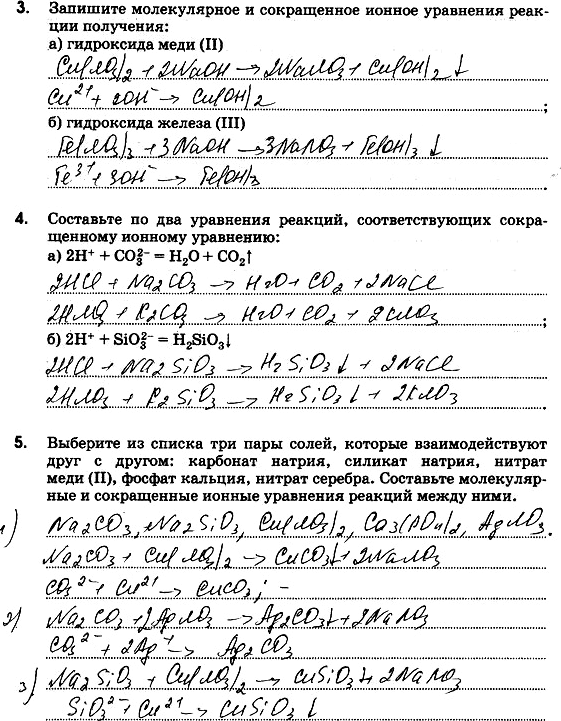 3. Запишите молекулярное и сокращенное ионное уравнения реак-
ции получения:
а) гидроксида меди (II)
Cu(NO₃)₂ + 2NaOH → 2NaNO₃ + Cu(OH)₂ ↓
Cu²⁺ + 2OH⁻ → Cu(OH)₂ ;
б) гидроксида железа (III)
Fe(NO₃)₃ + 3NaOH → 3NaNO₃ + Fe(OH)₃ ↓
Fe³⁺ + 3OH⁻ → Fe(OH)₃ .
4. Составьте по два уравнения реакций, соответствующих сокра-
щенному ионному уравнению:
а) 2H⁺ + CO₃²⁻ = H₂O + CO₂↑
2HCl + Na₂CO₃ → H₂O + CO₂ + 2NaCl
2HNO₃ + K₂CO₃ → H₂O + CO₂ + 2KNO₃ ;
б) 2H⁺ + SiO₃²⁻ = H₂SiO₃↓
2HCl + Na₂SiO₃ → H₂SiO₃↓ + 2NaCl
2HNO₃ + K₂SiO₃ → H₂SiO₃↓ + 2KNO₃ .
5. Выберите из списка три пары солей, которые взаимодействуют
друг с другом: карбонат натрия, силикат натрия, нитрат
меди (II), фосфат кальция, нитрат серебра. Составьте молекуляр-
ные и сокращенные ионные уравнения реакций между ними.
1) Na₂CO₃, Na₂SiO₃, Cu(NO₃)₂, Ca₃(PO₄)₂, AgNO₃.
Na₂CO₃ + Cu(NO₃)₂ → CuCO₃↓ + 2NaNO₃
CO₃²⁻ + Cu²⁺ → CuCO₃; -
2) Na₂CO₃ + 2AgNO₃ → Ag₂CO₃↓ + 2NaNO₃
CO₃²⁻ + 2Ag⁺ → Ag₂CO₃
3) Na₂SiO₃ + Cu(NO₃)₂ → CuSiO₃↓ + 2NaNO₃
SiO₃²⁻ + Cu²⁺ → CuSiO₃ ↓